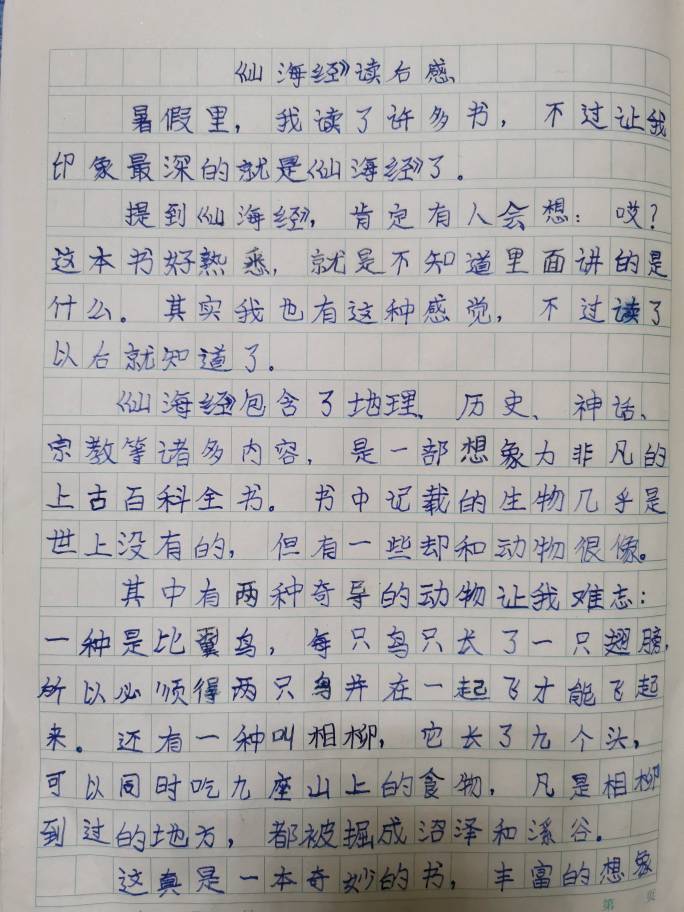 《山海经》读后感
暑假里，我读了许多书，不过让我
印象最深的就是《山海经》了。
提到《山海经》，肯定有人会想：哎？
这本书好熟悉，就是不知道里面讲的是
什么。其实我也有这种感觉，不过读了
以后就知道了。
《山海经》包含了地理、历史、神话、
宗教等诸多内容，是一部想象力非凡的
上古百科全书。书中记载的生物几乎是
世上没有的，但有一些却和动物很像。
其中有两种奇异的动物让我难忘：
一种是比翼鸟，每只鸟只长了一只翅膀，
所以必须得两只鸟并在一起飞才能飞起
来。还有一种叫相柳，它长了九个头，
可以同时吃九座山上的食物，凡是相柳
到过的地方，都被掘成沼泽和溪谷。
这真是一本奇妙的书，丰富的想象
第 页